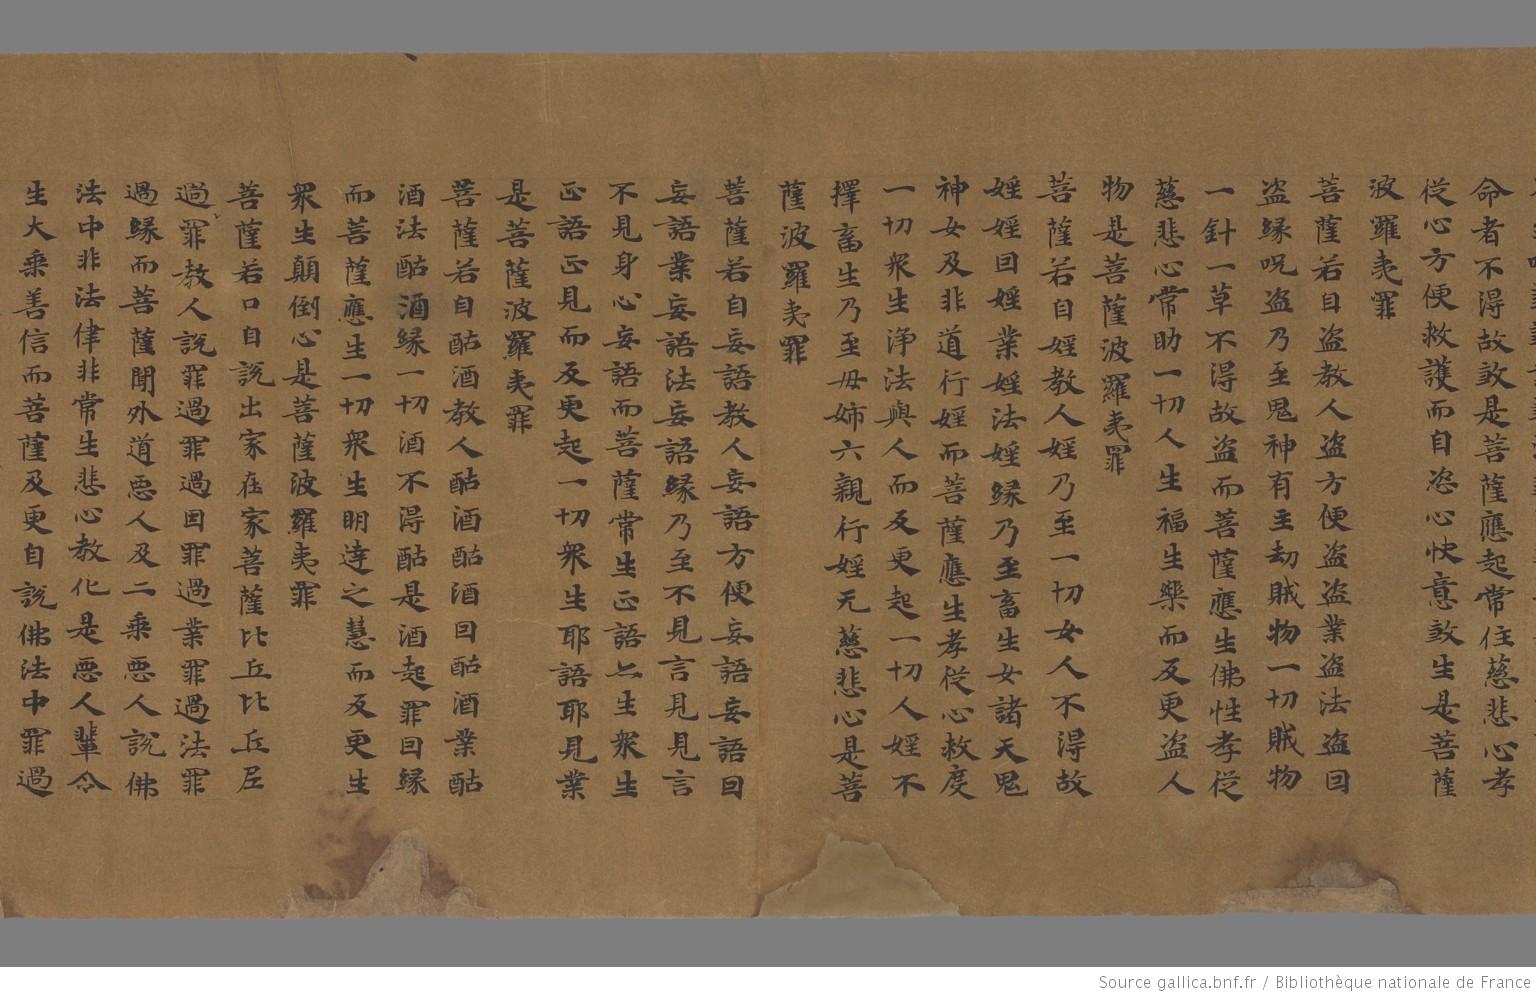 命者不得故煞是菩薩應起常住慈悲心孝
従心方便救護而自恣心快意煞生是菩薩
波羅夷罪
菩薩若自盗教人盗方便盗盗業盗法盗因
盗縁呪盗乃至鬼神有主劫賊物一切賊物
一針一草不得故盗而菩薩應生佛性孝従
慈悲心常助一切人生福生樂而反更盗人
物是菩薩波羅夷罪
菩薩若自婬教人婬乃至一切女人不得故
婬婬因婬業婬法婬縁乃至畜生女諸天鬼
神女及非道行婬而菩薩應生孝従心救度
一切衆生浄法與人而反更起一切人婬不
擇畜生乃至母姉六親行婬无慈悲心是菩
薩波羅夷罪
菩薩若自妄語教人妄語方便妄語妄語因
妄語業妄語法妄語縁乃至不見言見見言
不見身心妄語而菩薩常生正語亦生衆生
正語正見而反更起一切衆生耶語耶見業
是菩薩波羅夷罪
菩薩若自酤酒教人酤酒酤酒因酤酒業酤
酒法酤酒縁一切酒不得酤是酒起罪因縁
而菩薩應生一切衆生明達之慧而反更生
衆生顛倒心是菩薩波羅夷罪
菩薩若口自説出家在家菩薩比丘比丘尼
過罪教人説罪過罪過因罪過業罪過法罪
過縁而菩薩聞外道悪人及二乗悪人説佛
法中非法律非常生悲心教化是悪人輩令
生大乗善信而菩薩及更自説佛法中罪過
Source gallica.bnf.fr / Bibliothèque nationale de France